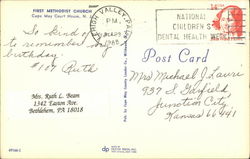 FIRST METHODIST CHURCH
Cape May Court House, N.J.
So kind of
to remember my
birthday.
#107 Ruth
Mrs. Ruth L. Bean
1342 Easton Ave.
Bethlehem, PA 18018
LEHIGH VALLEY, PA
P.M.
NATIONAL
CHILDREN'S
DENTAL HEALTH WEEK
Post Card
Mrs Michael J Laurie
937 S Garfield,
Junction City,
Kansas 66441